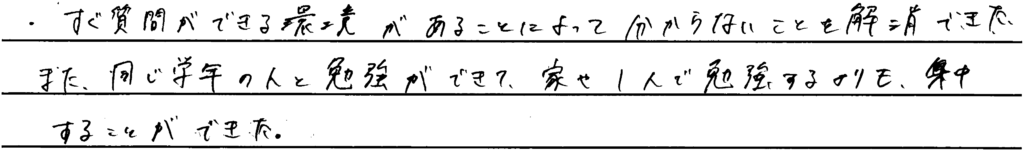 ・すぐ質問ができる環境があることによって分からないことを解消できた。
また、同じ学年の人と勉強ができて、家や1人で勉強するよりも、集中
することができた。